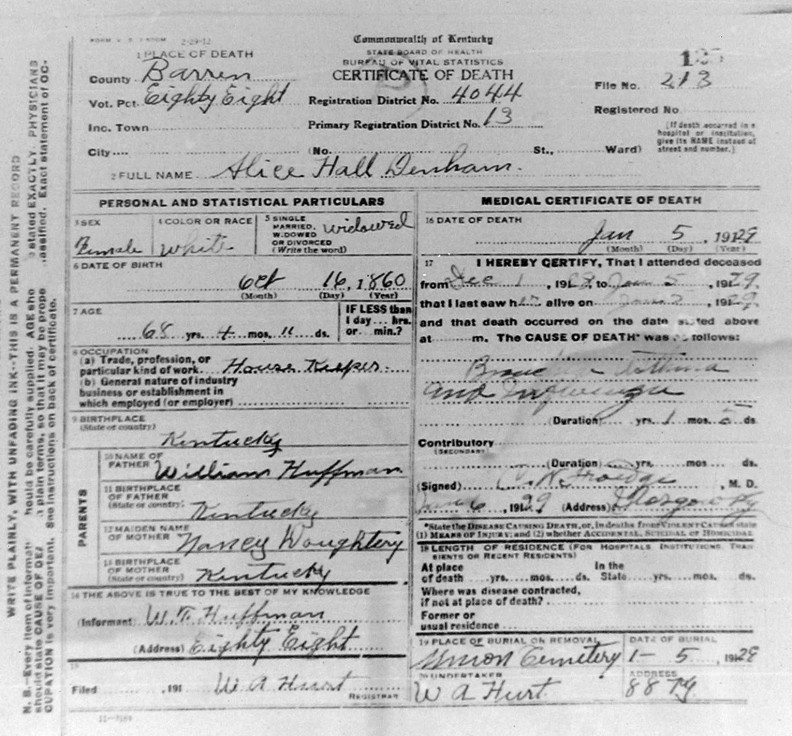 2-29-12
Commonwealth of Kentucky
STATE BOARD OF HEALTH
BUREAU OF VITAL STATISTICS
CERTIFICATE OF DEATH
1 PLACE OF DEATH
County Barren
Vot. Pct. Eighty Eight
Inc. Town
City (No. St., Ward)
Registration District No. 4044
Primary Registration District No. 13
File No. 213
Registered No.
(If death occurred in a
hospital or institution,
give its NAME instead of
street and number.)
2 FULL NAME Alice Hall Denham.
PERSONAL AND STATISTICAL PARTICULARS
3 SEX
Female
4 COLOR OR RACE
White
5 SINGLE
MARRIED,
WIDOWED
OR DIVORCED
(Write the word)
widowed
6 DATE OF BIRTH
Oct 16, 1860
(Month) (Day) (Year)
7 AGE
68 yrs. 4 mos. 11 ds.
IF LESS than
1 day... hrs.
or... min.?
8 OCCUPATION
(a) Trade, profession, or
particular kind of work House Keeper.
(b) General nature of industry
business or establishment in
which employed (or employer)
9 BIRTHPLACE
(State or country)
Kentucky
PARENTS
10 NAME OF
FATHER William Huffman
11 BIRTHPLACE
OF FATHER
(State or country) Kentucky
12 MAIDEN NAME
OF MOTHER Nancy Doughtery
13 BIRTHPLACE
OF MOTHER
(State or country) Kentucky
14 THE ABOVE IS TRUE TO THE BEST OF MY KNOWLEDGE
(Informant) W. T. Huffman
(Address) Eighty Eight
15
Filed , 191 W A Hurt
REGISTRAR
MEDICAL CERTIFICATE OF DEATH
16 DATE OF DEATH
Jan 5, 1929
(Month) (Day) (Year)
17 I HEREBY CERTIFY, That I attended deceased
from Dec 1, 19 to Jan 5 1929
that I last saw her alive on Jan 2 1929
and that death occurred on the date stated above
at m. The CAUSE OF DEATH* was as follows:
Asthma
and Influenza
(Duration) yrs. 1 mos. 5 ds.
Contributory
(SECONDARY)
(Duration) yrs. mos. ds.
(Signed) , M. D.
6, 1929 (Address) Glasgow Ky
*State the DISEASE CAUSING DEATH, or, in deaths from VIOLENT CAUSES state
(1) MEANS OF INJURY; and (2) whether ACCIDENTAL, SUICIDAL or HOMICIDAL
18 LENGTH OF RESIDENCE (FOR HOSPITALS INSTITUTIONS, TRANSIENTS OR RECENT RESIDENTS)
At place
of death yrs. mos. ds.
In the
State yrs. mos. ds.
Where was disease contracted,
if not at place of death?
Former or
usual residence
19 PLACE OF BURIAL OR REMOVAL
Union Cemetery
DATE OF BURIAL
1- 5, 1929
20 UNDERTAKER
W A Hurt
ADDRESS
88 Ky
WRITE PLAINLY, WITH UNFADING INK--THIS IS A PERMANENT RECORD